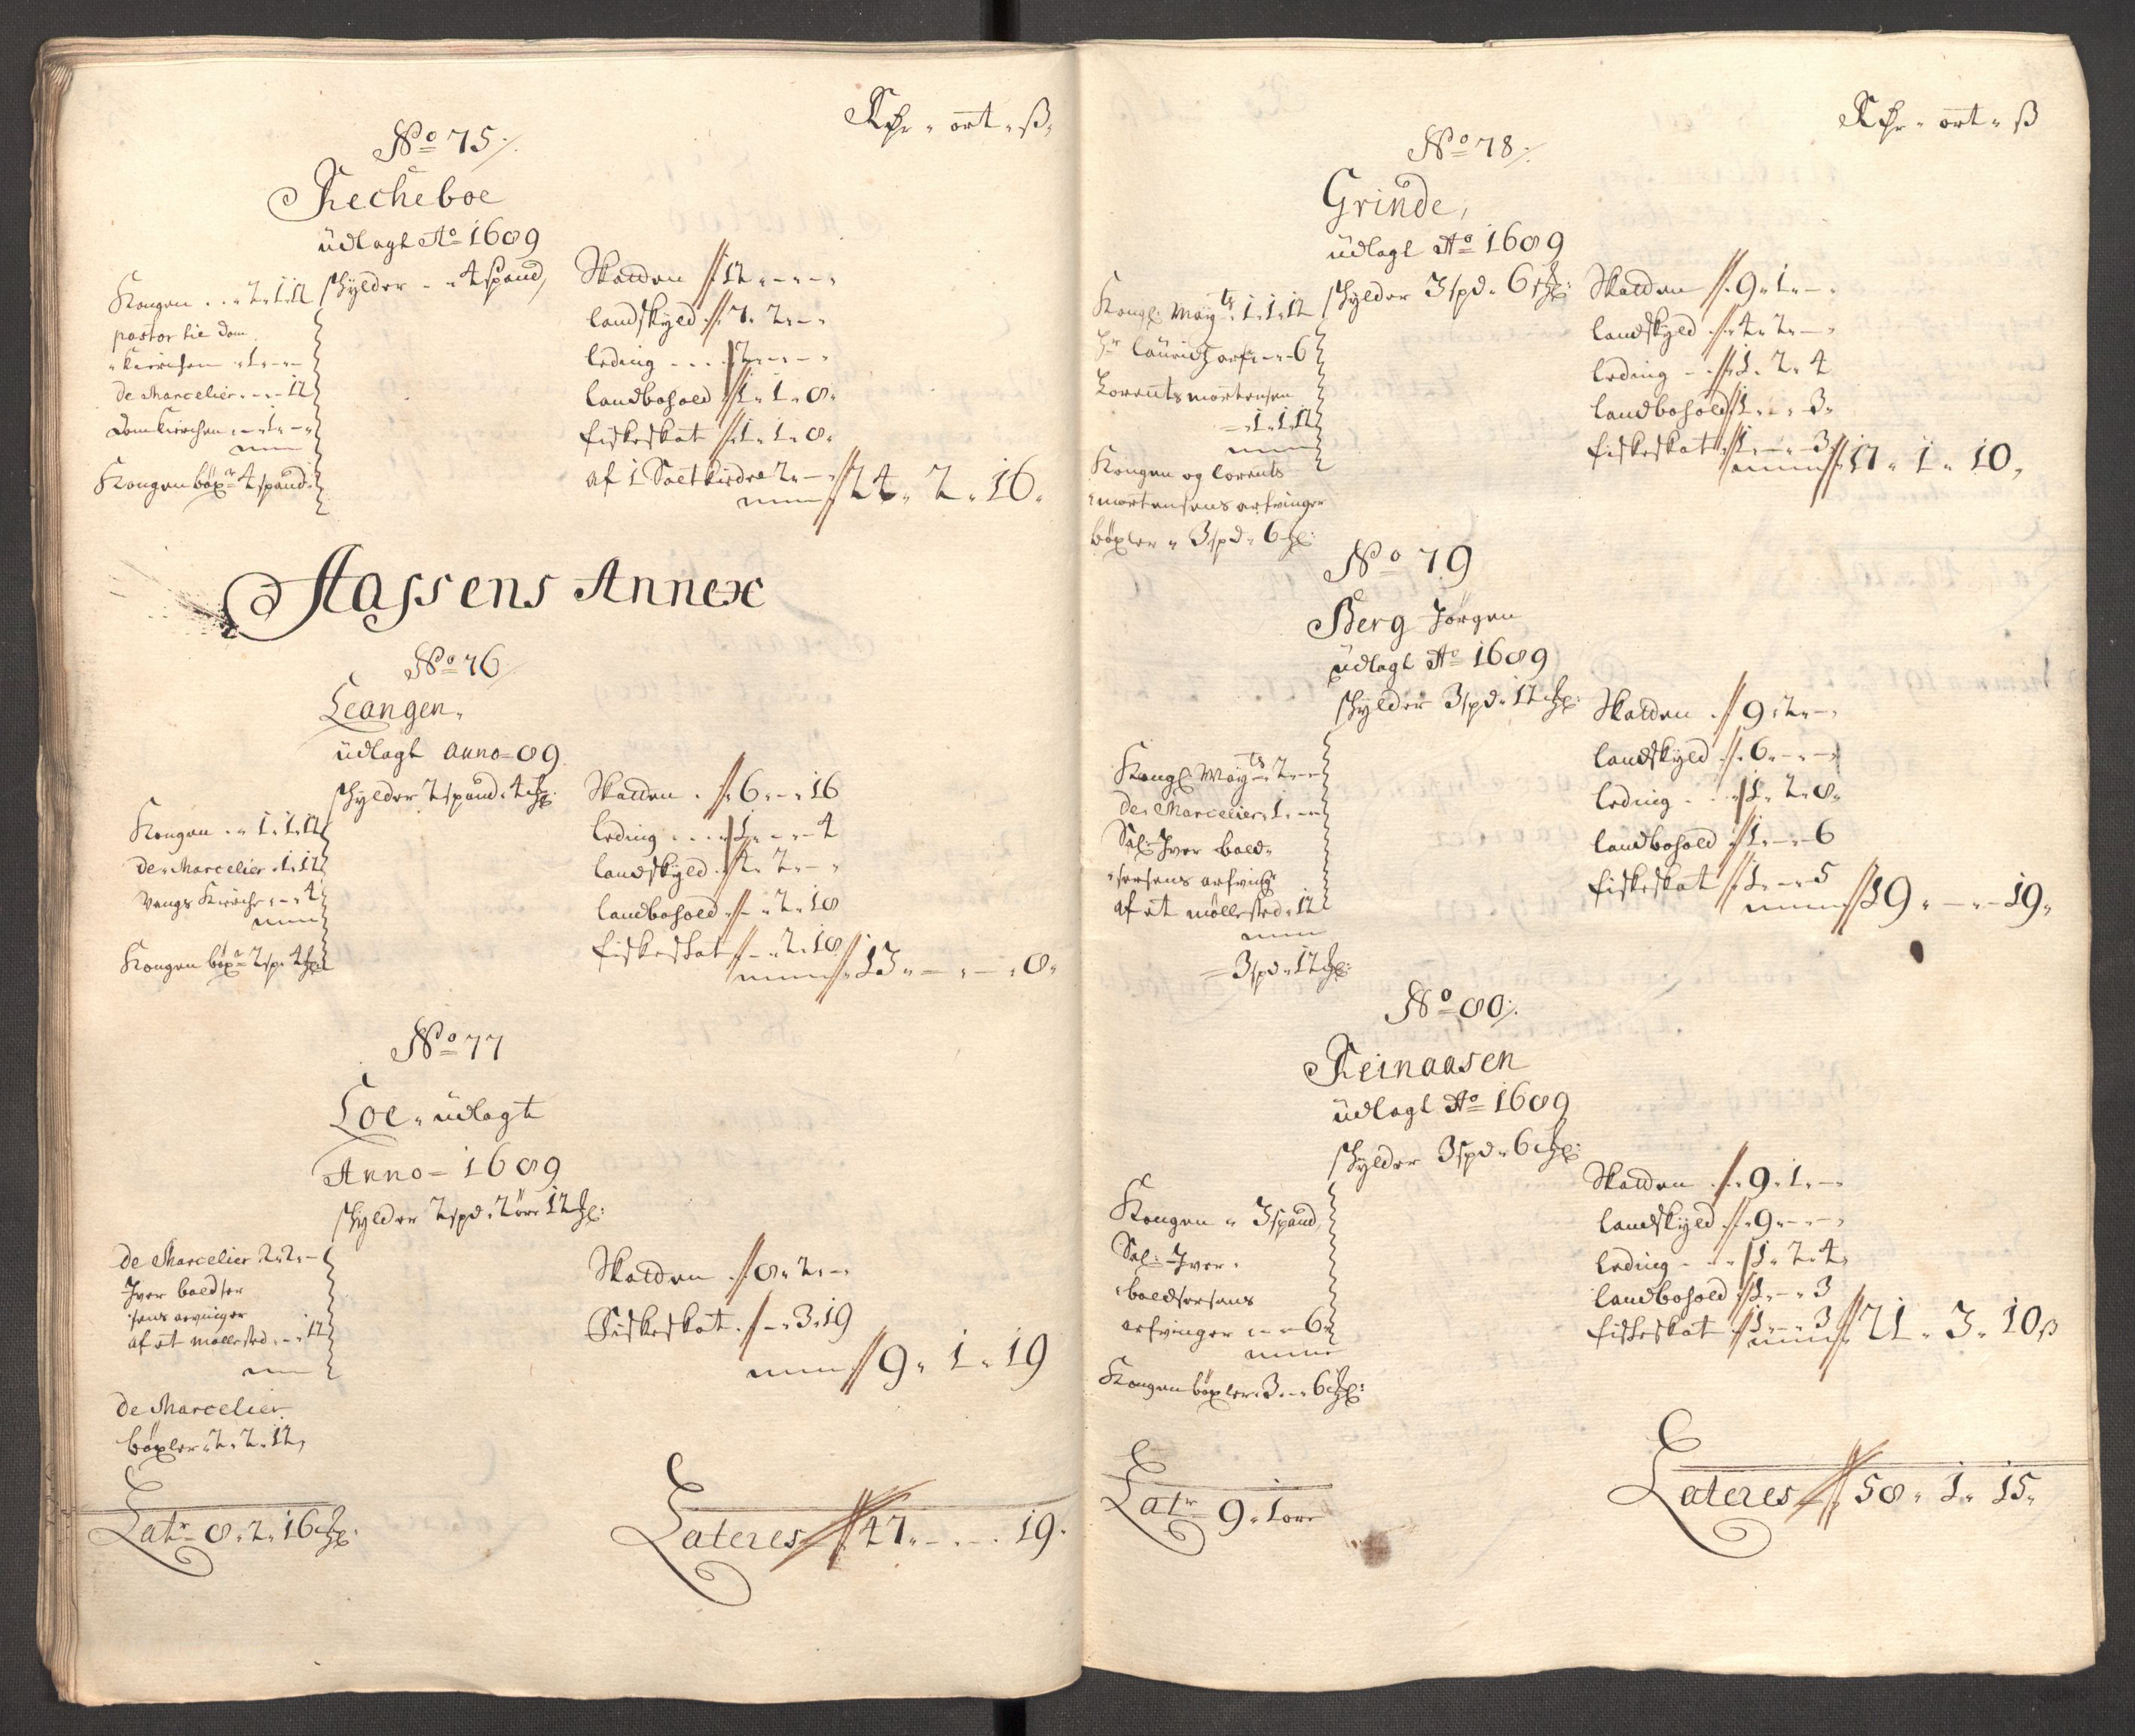 Rdr. ort. ß.
No 75
Recheboe
üdlagt Ao 1689
skylder - 4 spand
Kongen . . 2. 1. 12
pastor til Dom
Kirchen . 1. - -
De Marcelier . - - 12
Domkirchen . - 1. - -
Kongen böxr 4 spand
Skatten 12. - -
landskyld 7. 2. -
leding . . . 2. - -
landbohold 1. 1. 8.
fiskeskat 1. 1. 8.
af 1 2. -
24. 2. 16.
Aassens Annex
No 76
Leangen.
üdlagt anno 89
skylder 2 spand. 4 .
Kongen . . 1. 1. 12
De Marcelier . 1. 12
Vangs Kirche . - - 4
Kongen böxr 2 sp. 4
Skatten . 6. - 16
leding . . . 1. - - 4
landskyld 4. 2. -
landbohold - . 2. 18
fiskeskat - . 2. 18
13. - . - . 8.
No 77
Loe. üdlagt
Anno - 1689
skylder 2 spd. 2 öre 12
De Marcelier 2. 2. -
Jver boldser
sens arvinger
af et mollested . - . 12
De Marcelier
böxler . 2. 2. 12,
Skatten 8. 2. -
Fiskeskat . - . 3. 19
9. 1. 19
Latr 8. 2. 16
Lateres 47. - . . 19.
Rdr. ort. ß
No 78
Grinde,
üdlagt Ao 1689
skylder 3 spd. 6
Kongl. Maytz 1. 1. 12
Hr Lauridz arf: - - 6
Lorents mortensen
- 1. 1. 12
Kongen og Lorents
mortensens arfvinger
böxler . 3 spd. 6
Skatten 9. 1. -
landskyld 4. 2. -
leding - . 1. 2. 4
landbohold 1. - . 3.
fiskeskat 1. - . 3
17. 1. 10,
No 79
Berg Jörgen
üdlagt Ao 1689
skylder 3 spd. 12
Kongl. Maytz 2. - -
De Marcelier . 1. - -
Sal. Jver bold-
sersens arfving
af et möllested . 12
- 3 spd. 12
Skatten 9. 2. -
landskyld . 6. - -
leding . . 1. 2. 8.
landbohold 1. - - 6
fiskeskat 1. - - 5
19. - . - 19.
No 80
Reinaasen
üdlagt Ao 1689
skylder 3 spd. 6
Kongen . 3 spand
Sal. Jver .
boldsersens
arfvinger . - - 6.
Kongen böxler . 3. - . 6
Skatten . 9. 1. -
landskyld . 9. - -
leding - . . 1. 2. 4.
landbohold 1. - . 3
fiskeskat 1. - . 3
21. 3. 10 ß
Latr 9. 1 ore
Lateres 58. 1. 15.